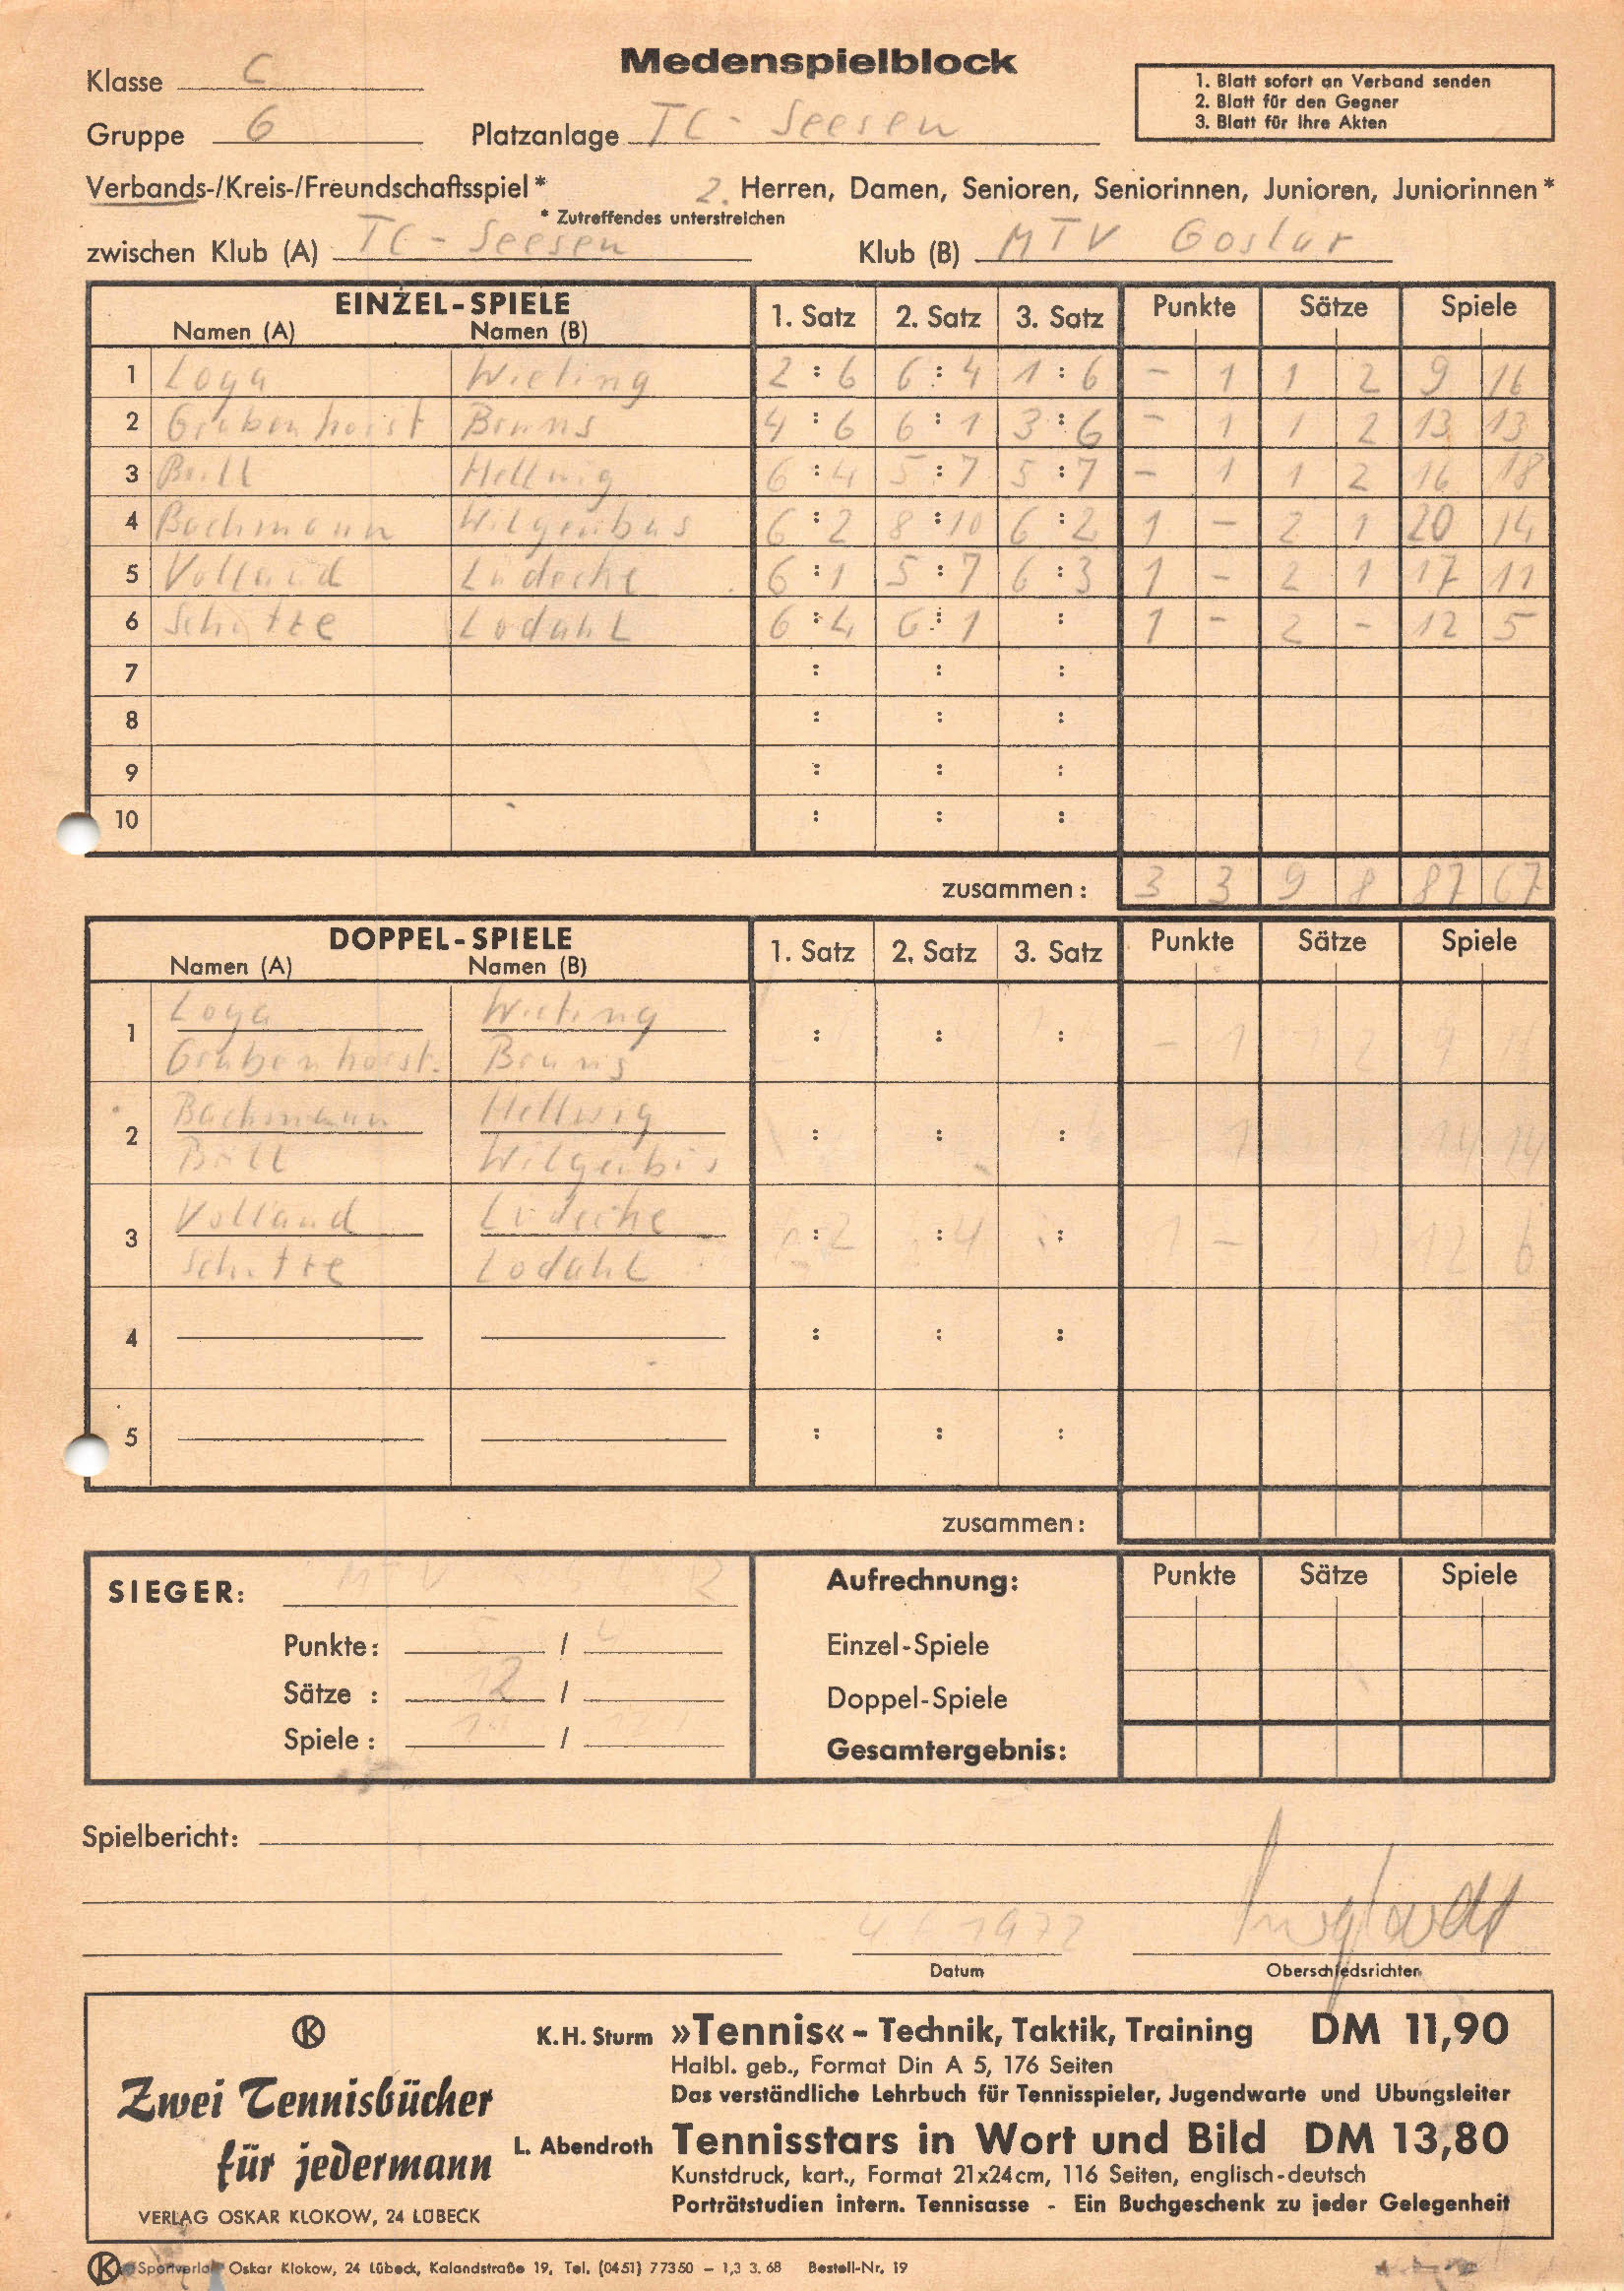 Medenspielblock
Klasse C
1. Blatt sofort an Verband senden
2. Blatt für den Gegner
3. Blatt für Ihre Akten
Gruppe 6 Platzanlage TC - Seesen
Verbands-/Kreis-/Freundschaftsspiel* 2. Herren, Damen, Senioren, Seniorinnen, Junioren, Juniorinnen*
* Zutreffendes unterstreichen
zwischen Klub (A) TC - Seesen Klub (B) MTV Goslar
EINZEL-SPIELE 1. Satz 2. Satz 3. Satz Punkte Sätze Spiele
Namen (A) Namen (B)
1 Loga Wieting 2 : 6 6 : 4 1 : 6 - 1 1 2 9 16
2 Grubenhorst Bruns 4 : 6 6 : 1 3 : 6 - 1 1 2 13 13
3 Brill Hellwig 6 : 4 5 : 7 5 : 7 - 1 1 2 16 18
4 Bachmann Wilgenbus 6 : 2 8 : 10 6 : 2 1 - 2 1 20 14
5 Volland Lüdecke 6 : 1 5 : 7 6 : 3 1 - 2 1 17 11
6 Schütze Lodahl 6 : 4 6 : 1 : 1 - 2 - 12 5
7 : : :
8 : : :
9 : : :
10 : : :
zusammen: 3 3 9 8 87 67
DOPPEL-SPIELE 1. Satz 2. Satz 3. Satz Punkte Sätze Spiele
Namen (A) Namen (B)
Loga Wieting
1 : : : - 1 1 2 9
Grubenhorst. Bruns
Bachmann Hellwig
2 : : : 1 14 14
Brill Wilgenbus
Volland Lüdecke
3 : 2 : 4 : 1 - 12 6
Schütze Lodahl
4 : : :
5 : : :
zusammen:
SIEGER: MTV Aufrechnung: Punkte Sätze Spiele
Punkte: / Einzel-Spiele
Sätze : 12 / Doppel-Spiele
Spiele : / Gesamtergebnis:
Spielbericht:
1972
Datum Oberschiedsrichter
K
K.H. Sturm »Tennis« - Technik, Taktik, Training DM 11,90
Halbl. geb., Format Din A 5, 176 Seiten
Zwei Tennisbücher
Das verständliche Lehrbuch für Tennisspieler, Jugendwarte und Übungsleiter
für jedermann
L. Abendroth Tennisstars in Wort und Bild DM 13,80
Kunstdruck, kart., Format 21x24cm, 116 Seiten, englisch-deutsch
VERLAG OSKAR KLOKOW, 24 LÜBECK
Porträtstudien intern. Tennisasse - Ein Buchgeschenk zu jeder Gelegenheit
K Sportverlag Oskar Klokow, 24 Lübeck, Kalandstraße 19, Tel. (0451) 77350 - 1,3 3. 68 Bestell-Nr. 19